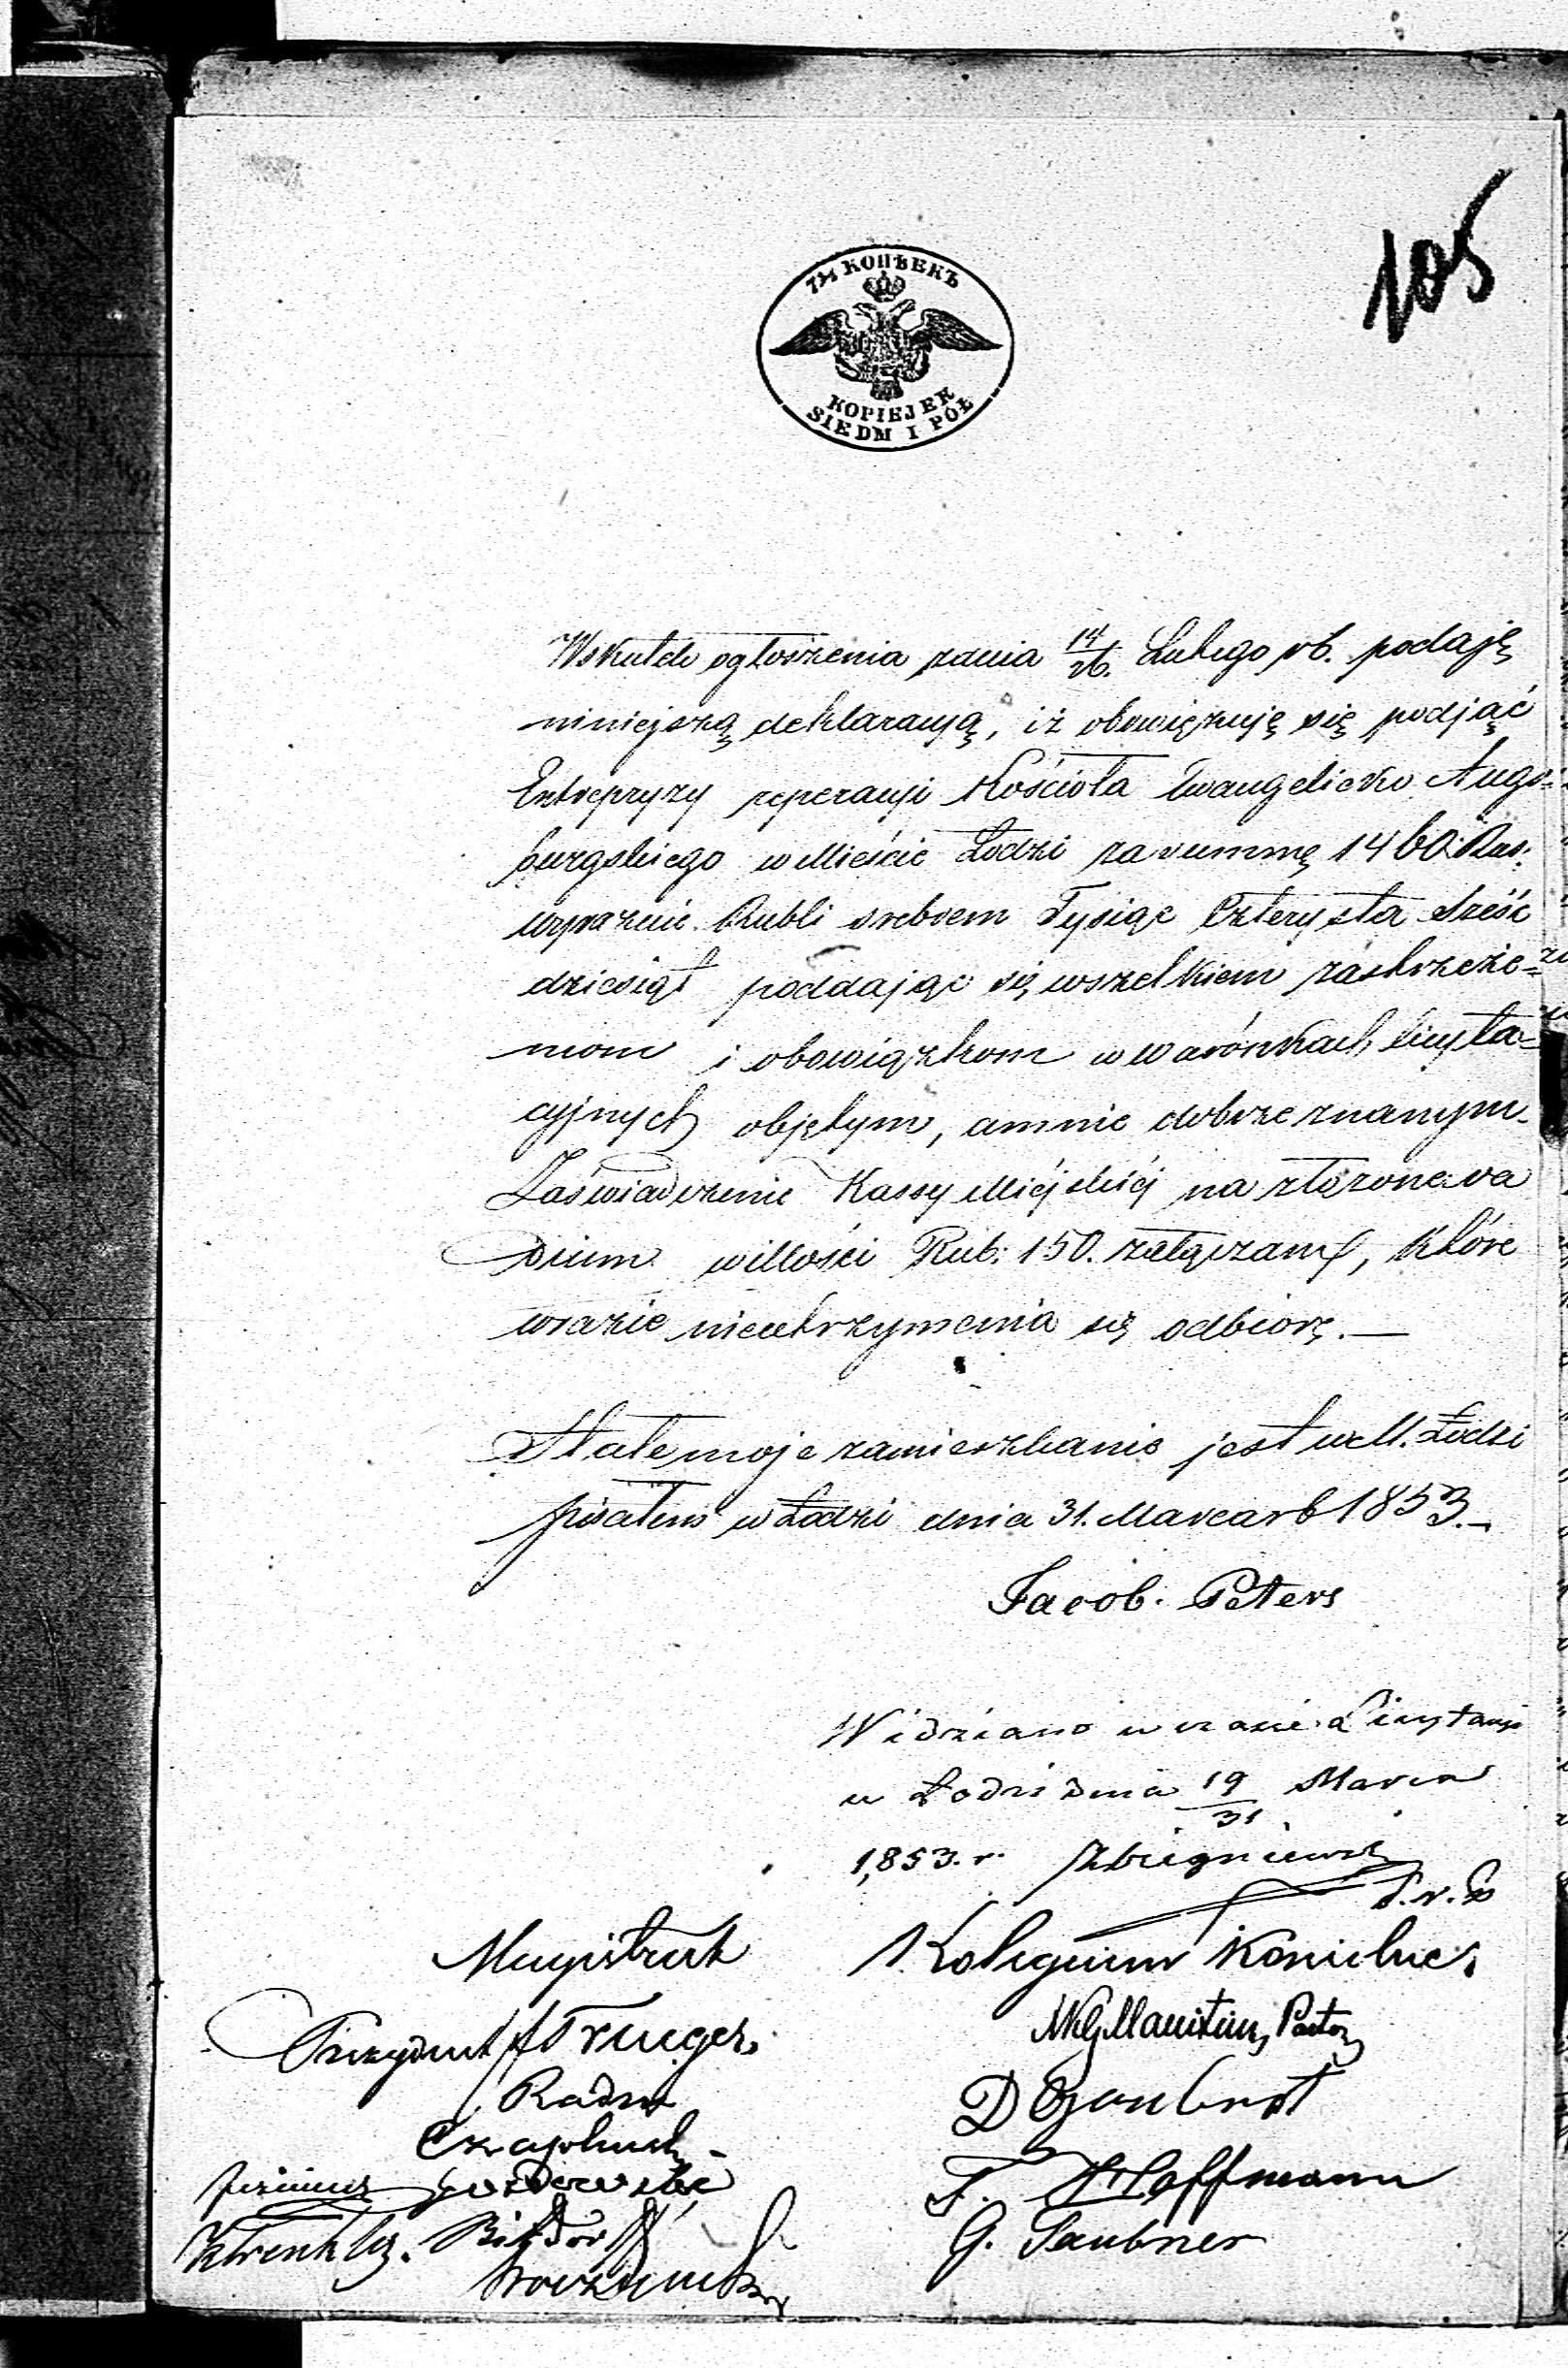 105
7½ КОПѢЕКЪ
KOPIEJEK
SIEDM I PÓŁ
Wskutek ogłoszenia zdnia 14/26. Lutego rb. podaję
niniejszą deklaracyą, iż obowięzuję się podjąć
Entrepryzy reperacyi Kościoła Ewangelicko Augs=
burgskiego w Mieście Łodzi za summę 1460. Rus:
wyraznie Rubli srebrem Tysiąc Czterysta sześć
dziesiąt poddając się wszelkiem zastrzeże=
niom i obowiązkom w warónkach licyta=
cyjnych objętym, a mnie dobrze znanym.
Zaświadczenie Kassy Miéjskiéj na złożone va
dium willości Rub: 150. załączam, które
wrazie nieutrzymania się odbiorę.—
Stałe moje zamieszkanie jest w M. Łodzi
pisałem w Łodzi dnia 31. Marca rb 1853.—
Jacob. Peters
Widziano w czasie Licytacyi
w Łodzi dnia 19/31 Marca
1,853. r.
Magistrat
Kolegium Kościelne.
Prezydent Traeger.
Pastor
Radni
F. Hoffmann
G. Taubner